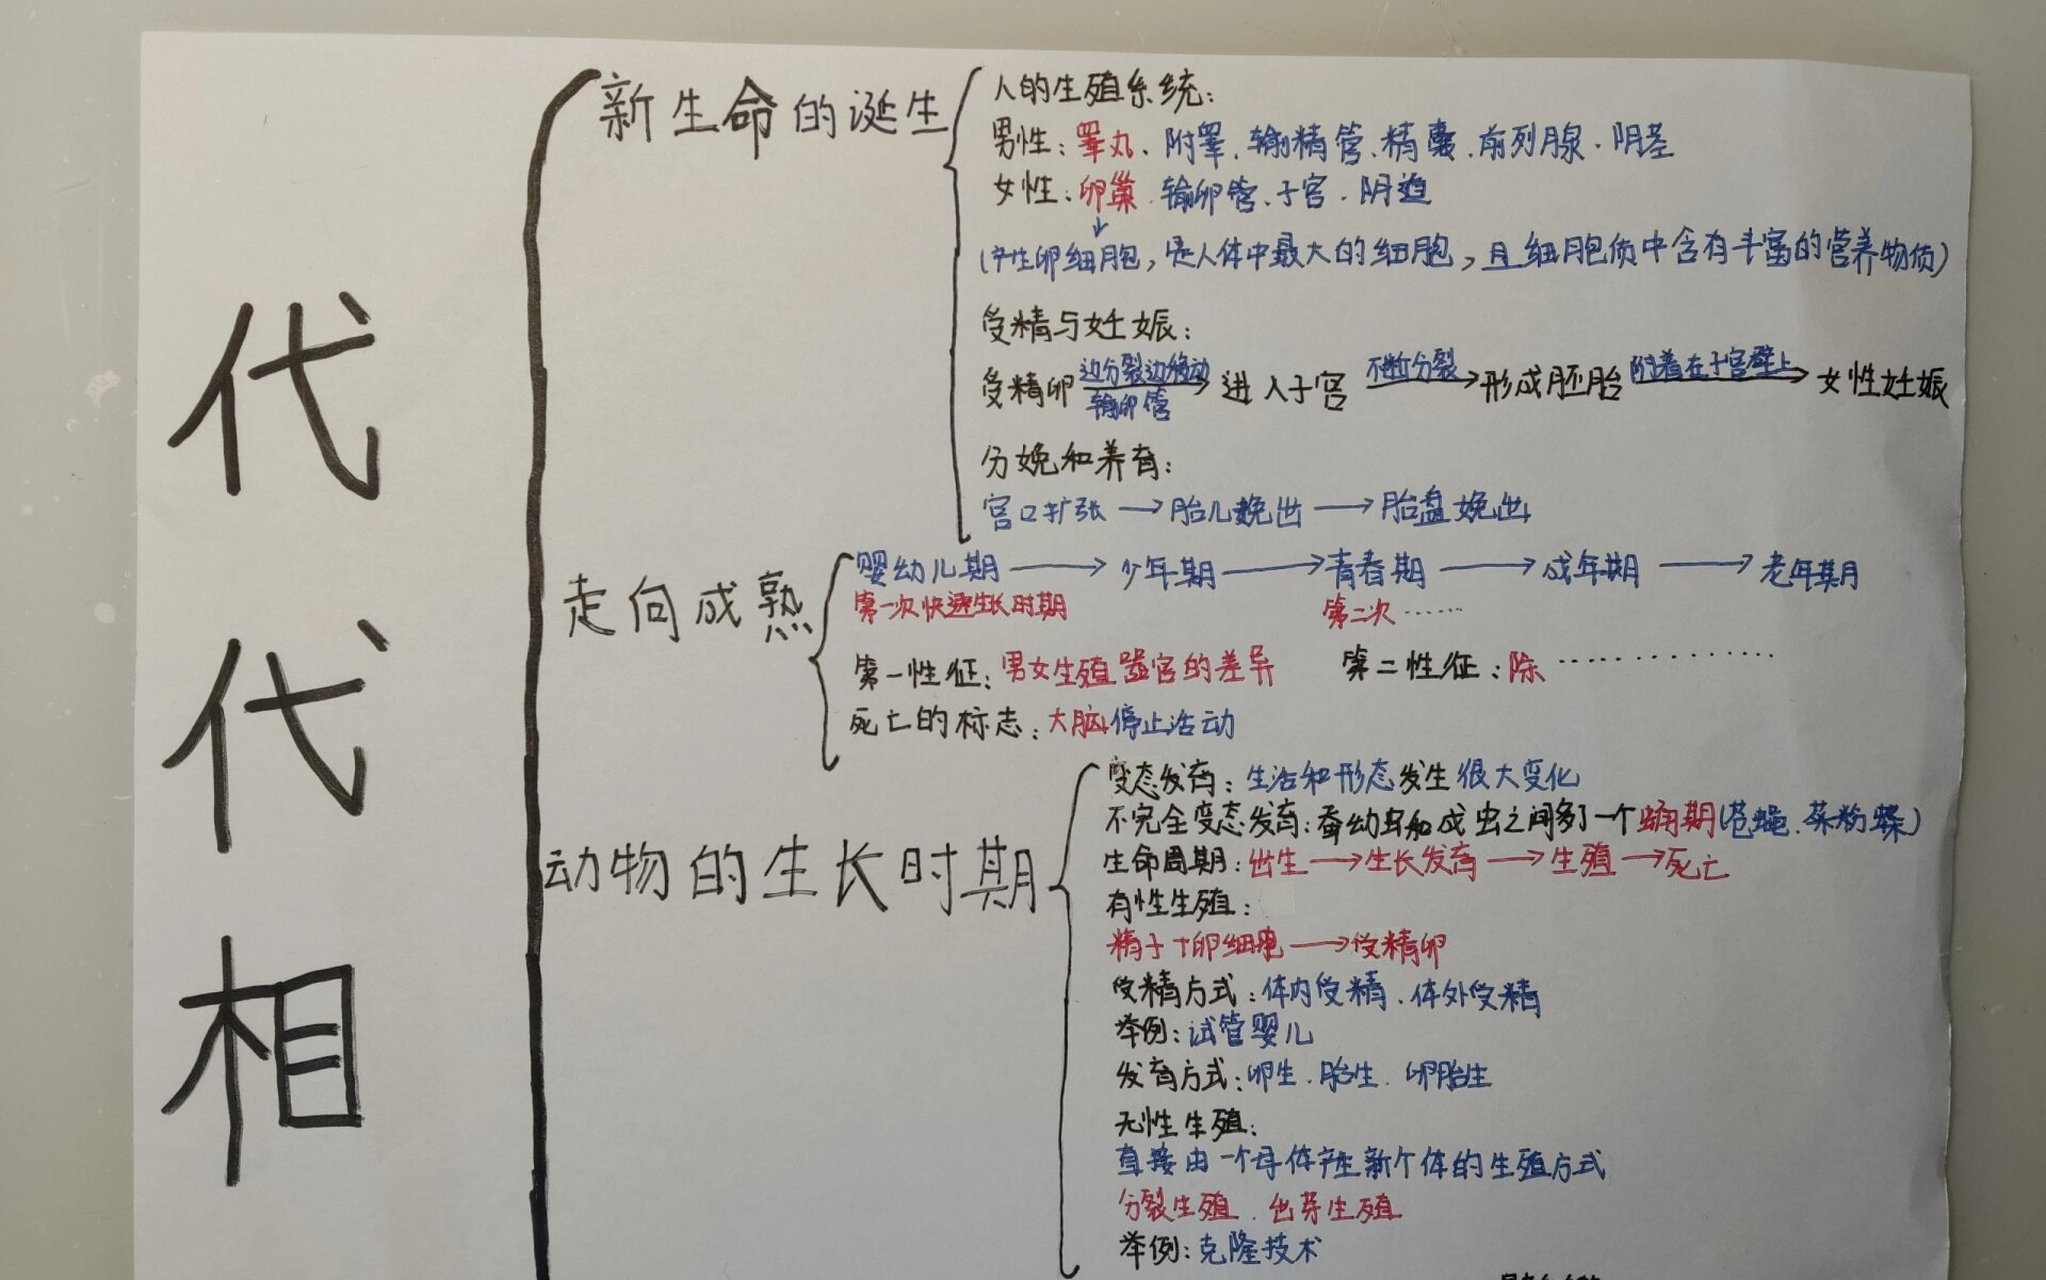 代代相
新生命的诞生
人的生殖系统:
男性:睾丸、附睾、输精管、精囊、前列腺、阴茎
女性:卵巢、输卵管、子宫、阴道
(产生卵细胞,是人体中最大的细胞,且细胞质中含有丰富的营养物质)
受精与妊娠:
受精卵 边分裂边移动 输卵管 → 进入子宫 不断分裂 → 形成胚胎 附着在子宫壁上 → 女性妊娠
分娩和养育:
宫口扩张 → 胎儿娩出 → 胎盘娩出
走向成熟
婴幼儿期 → 少年期 → 青春期 → 成年期 → 老年期
第一次快速生长时期 第二次……
第一性征:男女生殖器官的差异 第二性征:除……………
死亡的标志:大脑停止活动
动物的生长时期
变态发育:生活和形态发生很大变化
不完全变态发育:蚕幼虫和成虫之间多了一个蛹期(苍蝇、菜粉蝶)
生命周期:出生 → 生长发育 → 生殖 → 死亡
有性生殖:
精子+卵细胞 → 受精卵
受精方式:体内受精、体外受精
举例:试管婴儿
发育方式:卵生、胎生、卵胎生
无性生殖:
直接由一个母体产生新个体的生殖方式
分裂生殖、出芽生殖
举例:克隆技术